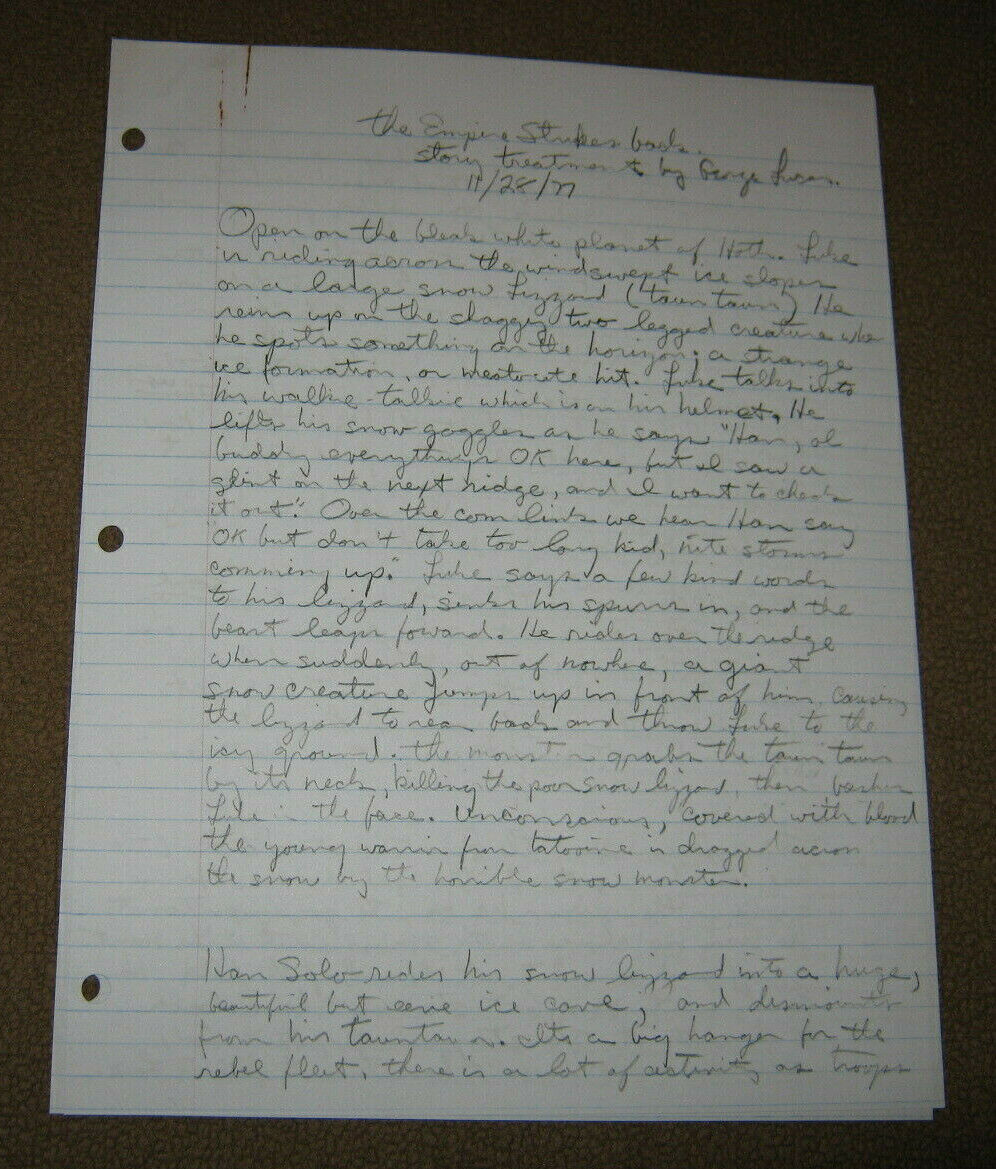 the Empire Strikes back.
story treatment by George Lucas.
11/28/77
Open on the bleak white planet of Hoth. Luke
is riding across the windswept ice slopes
on a large snow Lizzard (taun taun) He
reins up on the shaggy two legged creature when
he spots something on the horizon; a strange
ice formation, or meotocite hit. Luke talks into
his walkie-talkie which is on his helmet. He
lifts his snow goggles as he says "Han, ol
buddy everything's OK here, but I saw a
glint on the next ridge, and I want to check
it out." Over the com link we hear Han say
"OK but don't take too long kid, nite storms
comming up." Luke says a few kind words
to his lizzard, sinks his spurrs in, and the
beast leaps foward. He rides over the ridge
when suddenly, out of nowhere, a giant
snow creature Jumps up in front of him causing
the lizzard to rear back and throw Luke to the
icy ground. the monster grabs the taun taun
by its neck, killing the poor snow lizzard, then bashes
Luke in the face. Unconscious, covered with blood
the young warrior from tatooine is dragged across
the snow by the horrible snow monster.
Han Solo rides his snow lizzard into a huge,
beautiful but eerie ice cave, and dismounts
from his tauntaun. Its a big hanger for the
rebel fleet. there is a lot of activity as troops